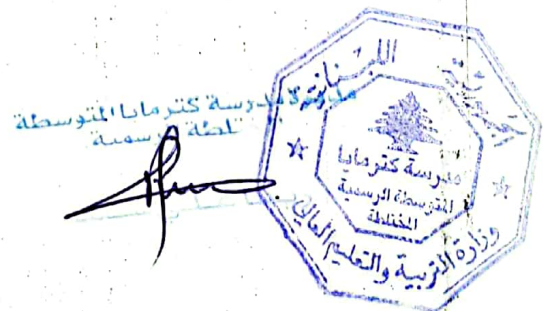 مدرسة كترمايا المتوسطة
الجمهورية اللبنانية
مدرسة كترمايا
المتوسطة الرسمية
المختلطة
وزارة التربية والتعليم العالي